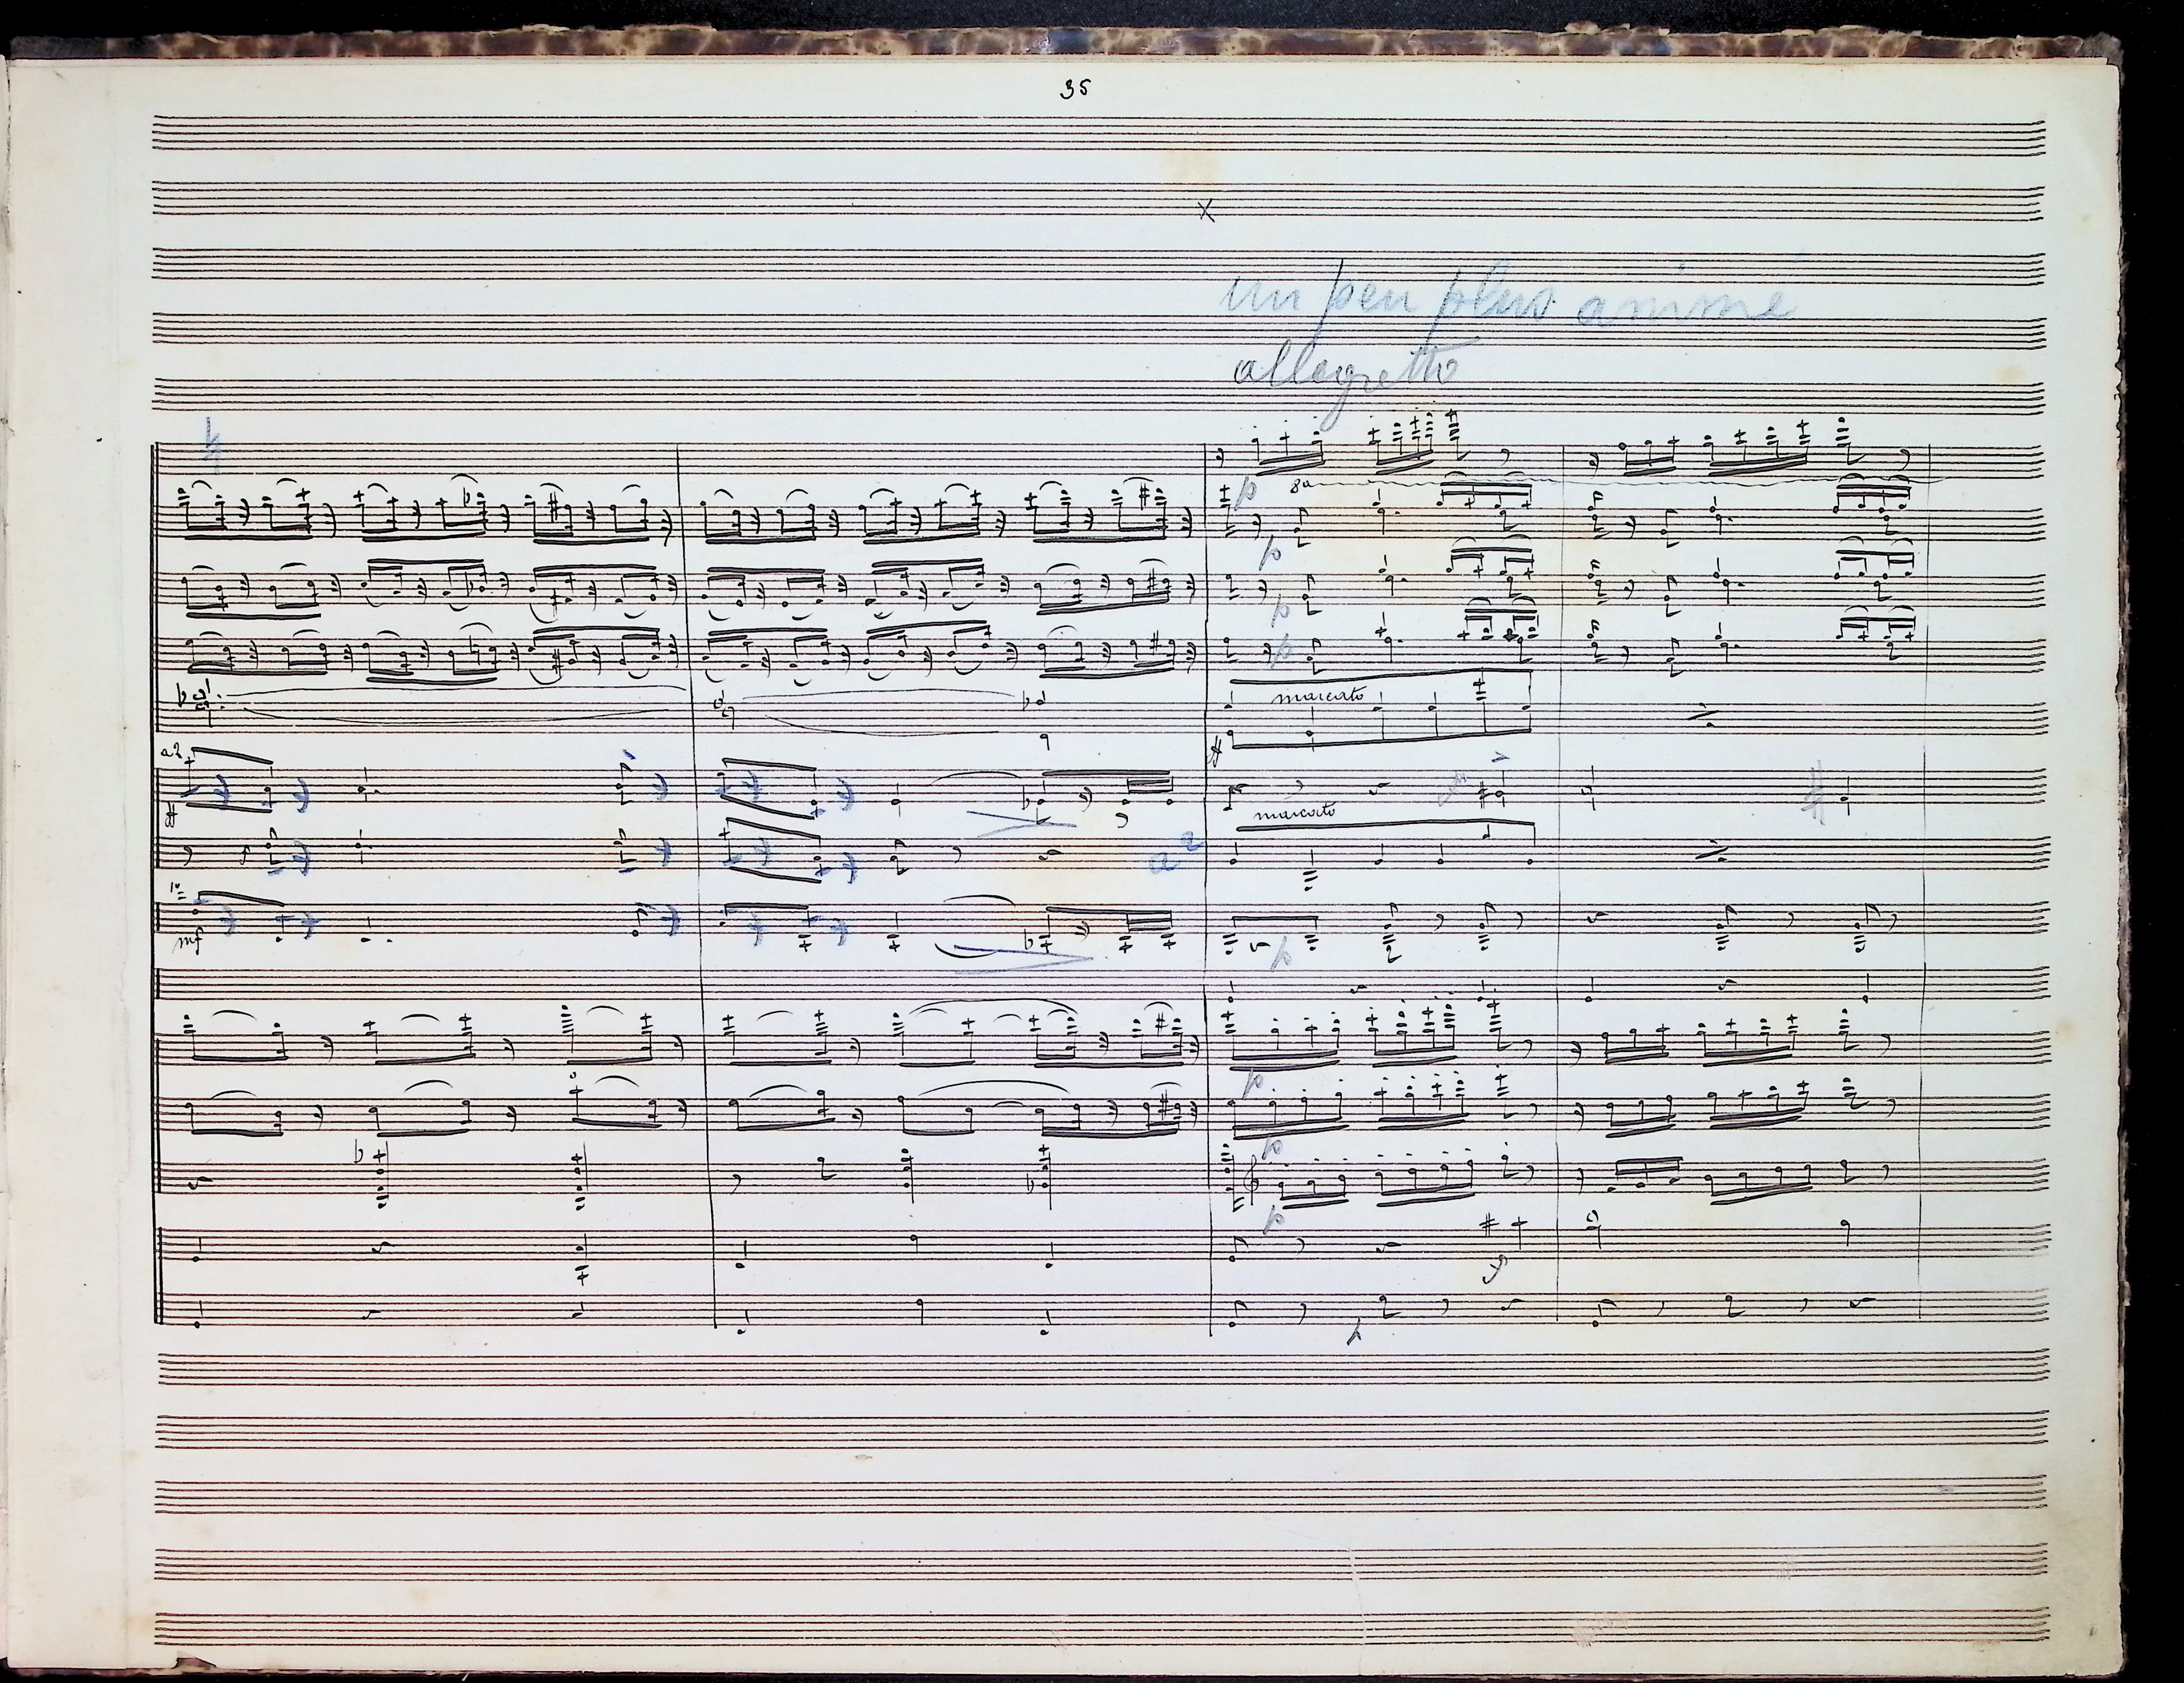 35
un peu plus animé
allegretto
p
8a
p
p
p
marcato
a2
ff
ff
marcato
a2
1º
mf
p
p
p
p
p